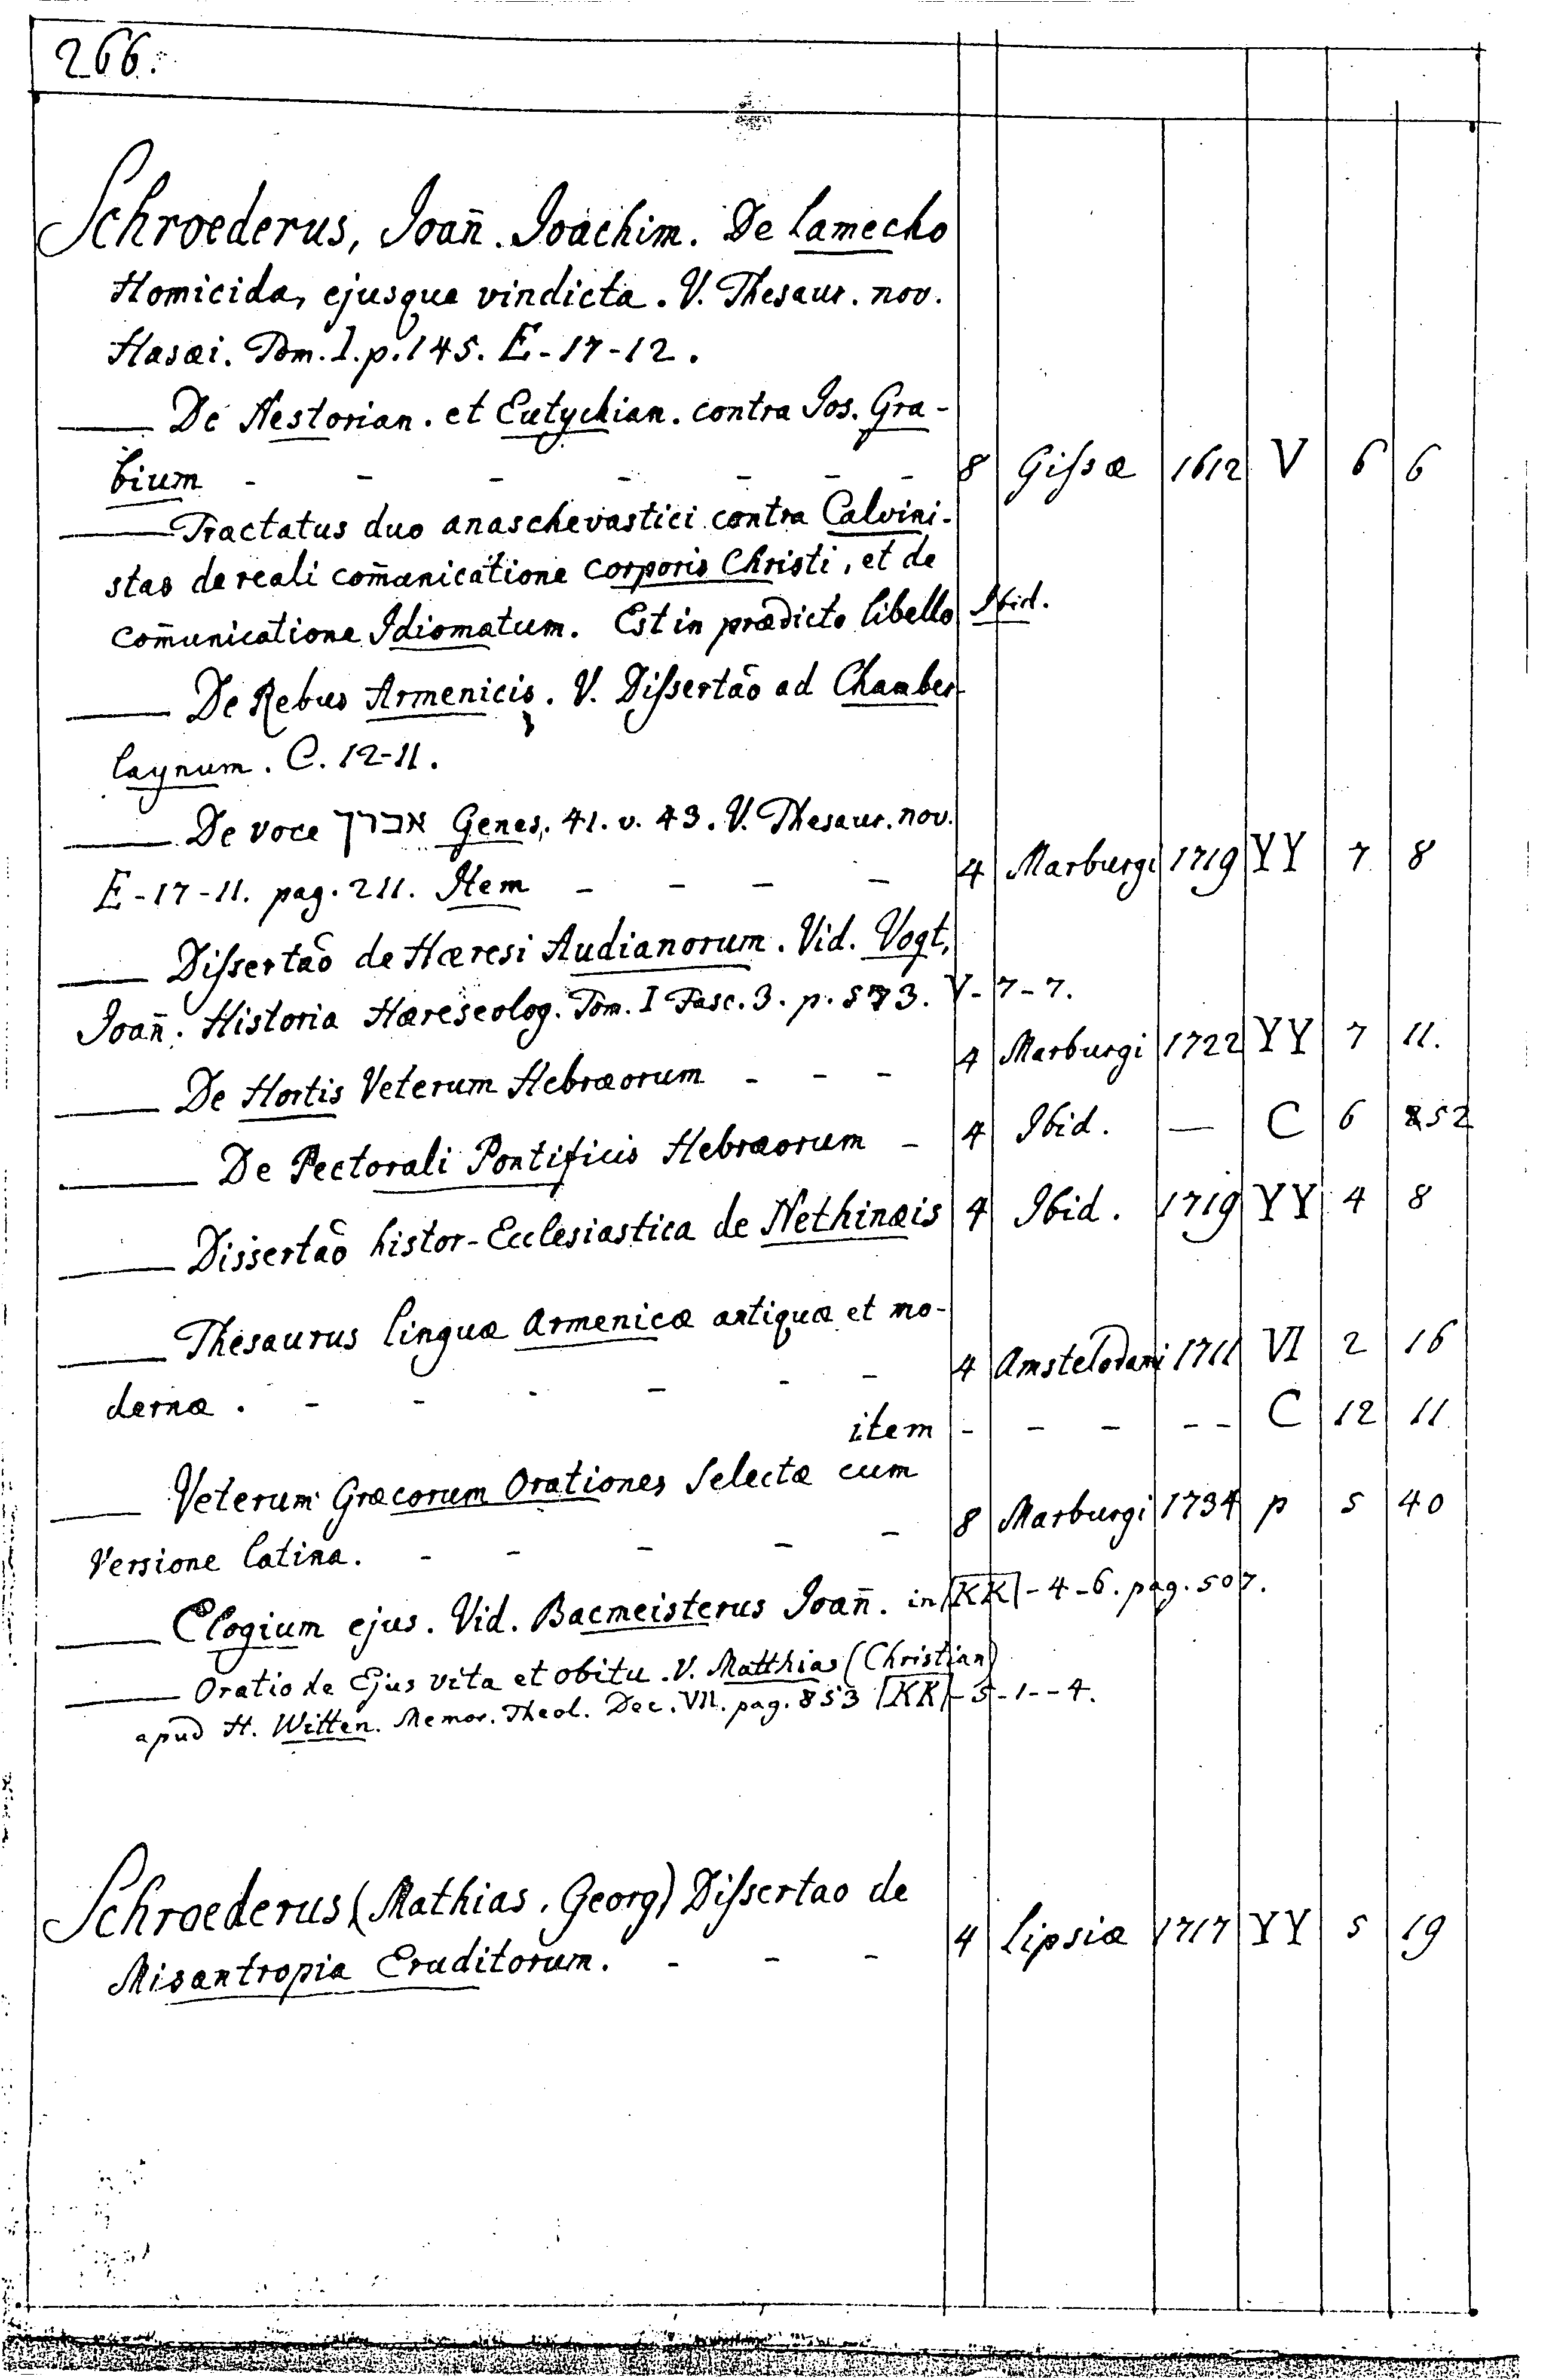 266.
Schroederus, Joan̄. Joachim. De Lamecho
Homicida, ejusque vindicta. V. Thesaur. nov.
Hasæi. Tom. I. p. 145. E-17-12.
—— De Nestorian. et Eutychian. contra Jos. Gra-
bium - - - - - - - 8 Gissæ 1612 V 6 6
—— Tractatus duo anaschevastici contra Calvini-
stas de reali com̄unicatione corporis Christi, et de
com̄unicatione Idiomatum. Est in prædicto libello Ibid.
—— De Rebus Armenicis. V. Dissertaõ ad Chamber
laynum. C. 12-11.
—— De voce אברך Genes. 41. v. 43. V. Thesaur. nov.
E-17-11. pag. 211. Item - - - - 4 Marburgi 1719 YY 7 8
—— Dissertaõ de Hæresi Audianorum. Vid. Vogt,
Joan̄. Historia Hæreseolog. Tom. I Fasc. 3. p. 573. V-7-7.
—— De Hortis Veterum Hebræorum - - - 4 Marburgi 1722 YY 7 11.
—— De Pectorali Pontificis Hebræorum - 4 Ibid. — C 6 252
—— Dissertaõ histor-Ecclesiastica de Nethinæis 4 Ibid. 1719 YY 4 8
—— Thesaurus linguæ armenicæ antiquæ et mo-
dernæ. - - - - - - 4 Amstelodami 1711 VI 2 16
item - - - - - C 12 11
—— Veterum Græcorum Orationes Selectæ cum
Versione latina. - - - - - 8 Marburgi 1734 p 5 40
—— Elogium ejus. Vid. Bacmeisterus Joan̄. in KK-4-6. pag. 507.
—— Oratio de Ejus vita et obitu. V. Matthias (Christian)
apud H. Witten. Memor. Theol. Dec. VII. pag. 853 KK-5-1--4.
Schroederus (Mathias. Georg) Dissertao de
Misantropia Eruditorum. - - - 4 Lipsiæ 1717 YY 5 19